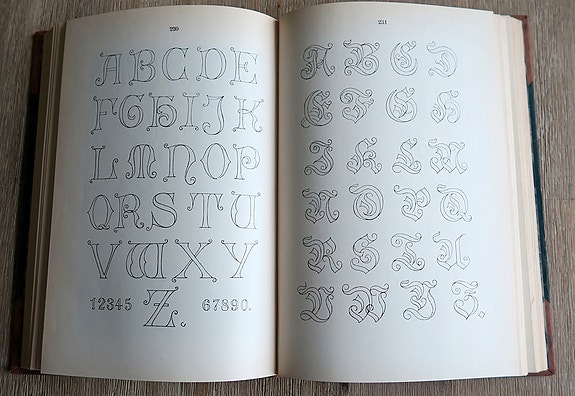 230
A B C D E
F G H I J K
L M N O P
Q R S T U
V W X Y
12345 Z. 67890.
231
A B C D
E F G H
I K L M
N O P Q
R S T U
V W Y Z.